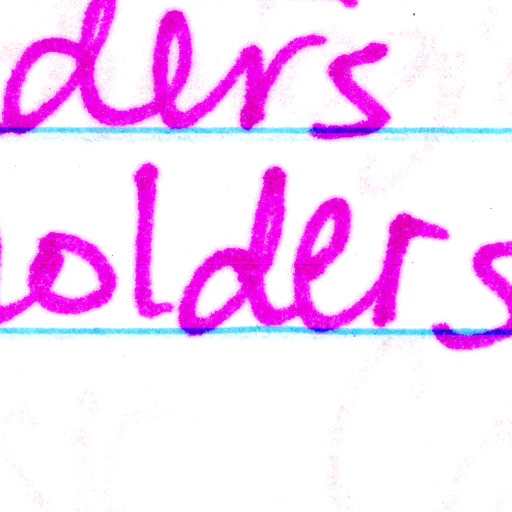 ders
olders